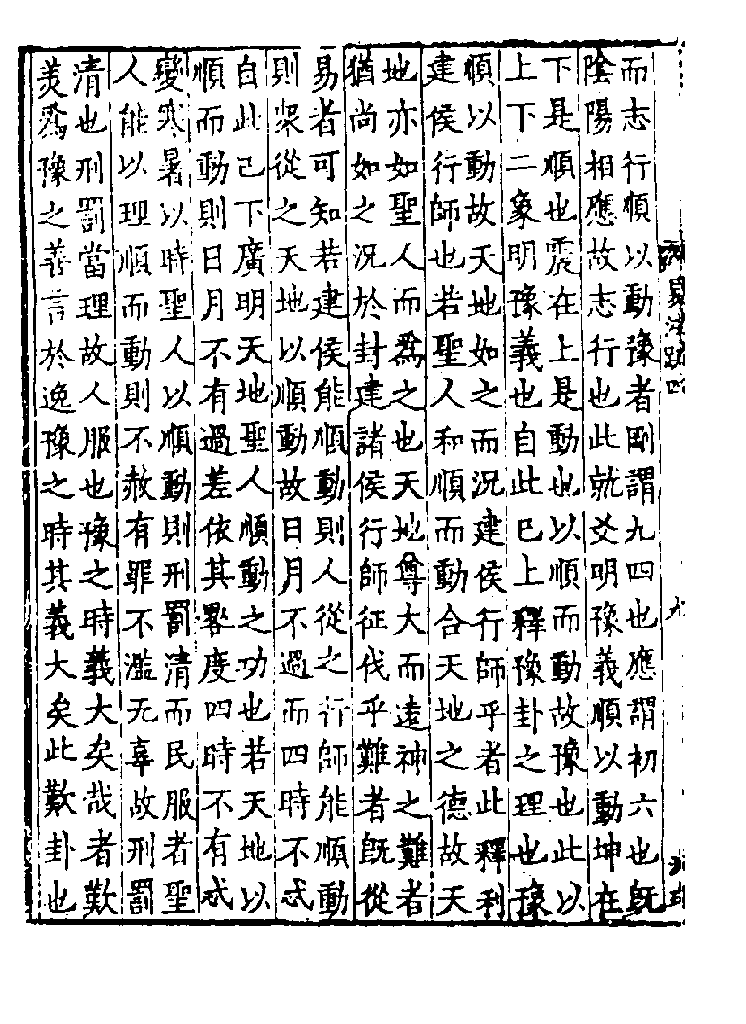 而志行順以動豫者剛謂九四也應謂初六也既
陰陽相應故志行也此就爻明豫義順以動坤在
下是順也震在上是動也以順而動故豫也此以
上下二象明豫義也自此已上釋豫卦之理也豫
順以動故天地如之而況建侯行師乎者此釋利
建侯行師也若聖人和順而動合天地之德故天
地亦如聖人而爲之也天地尊大而遠神之難者
猶尚如之況於封建諸侯行師征伐乎難者既從
易者可知若建侯能順動則人從之行師能順動
則衆從之天地以順動故日月不過而四時不忒
自此已下廣明天地聖人順動之功也若天地以
順而動則日月不有過差依其晷度四時不有忒
變寒暑以時聖人以順動則刑罰清而民服者聖
人能以理順而動則不赦有罪不濫无辜故刑罰
清也刑罰當理故人服也豫之時義大矣哉者歎
美爲豫之善言於逸豫之時其義大矣此歎卦也